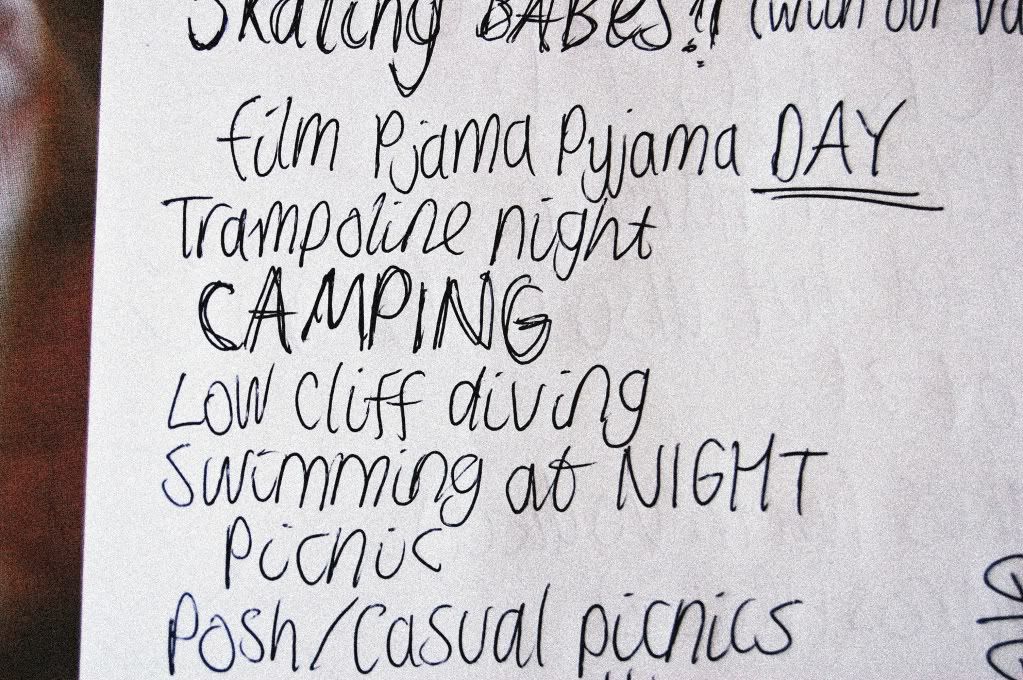 Skating BABES!! (with our
film Pjama Pyjama DAY
Trampoline night
CAMPING
Low cliff diving
Swimming at NIGHT
Picnic
Posh/Casual picnics